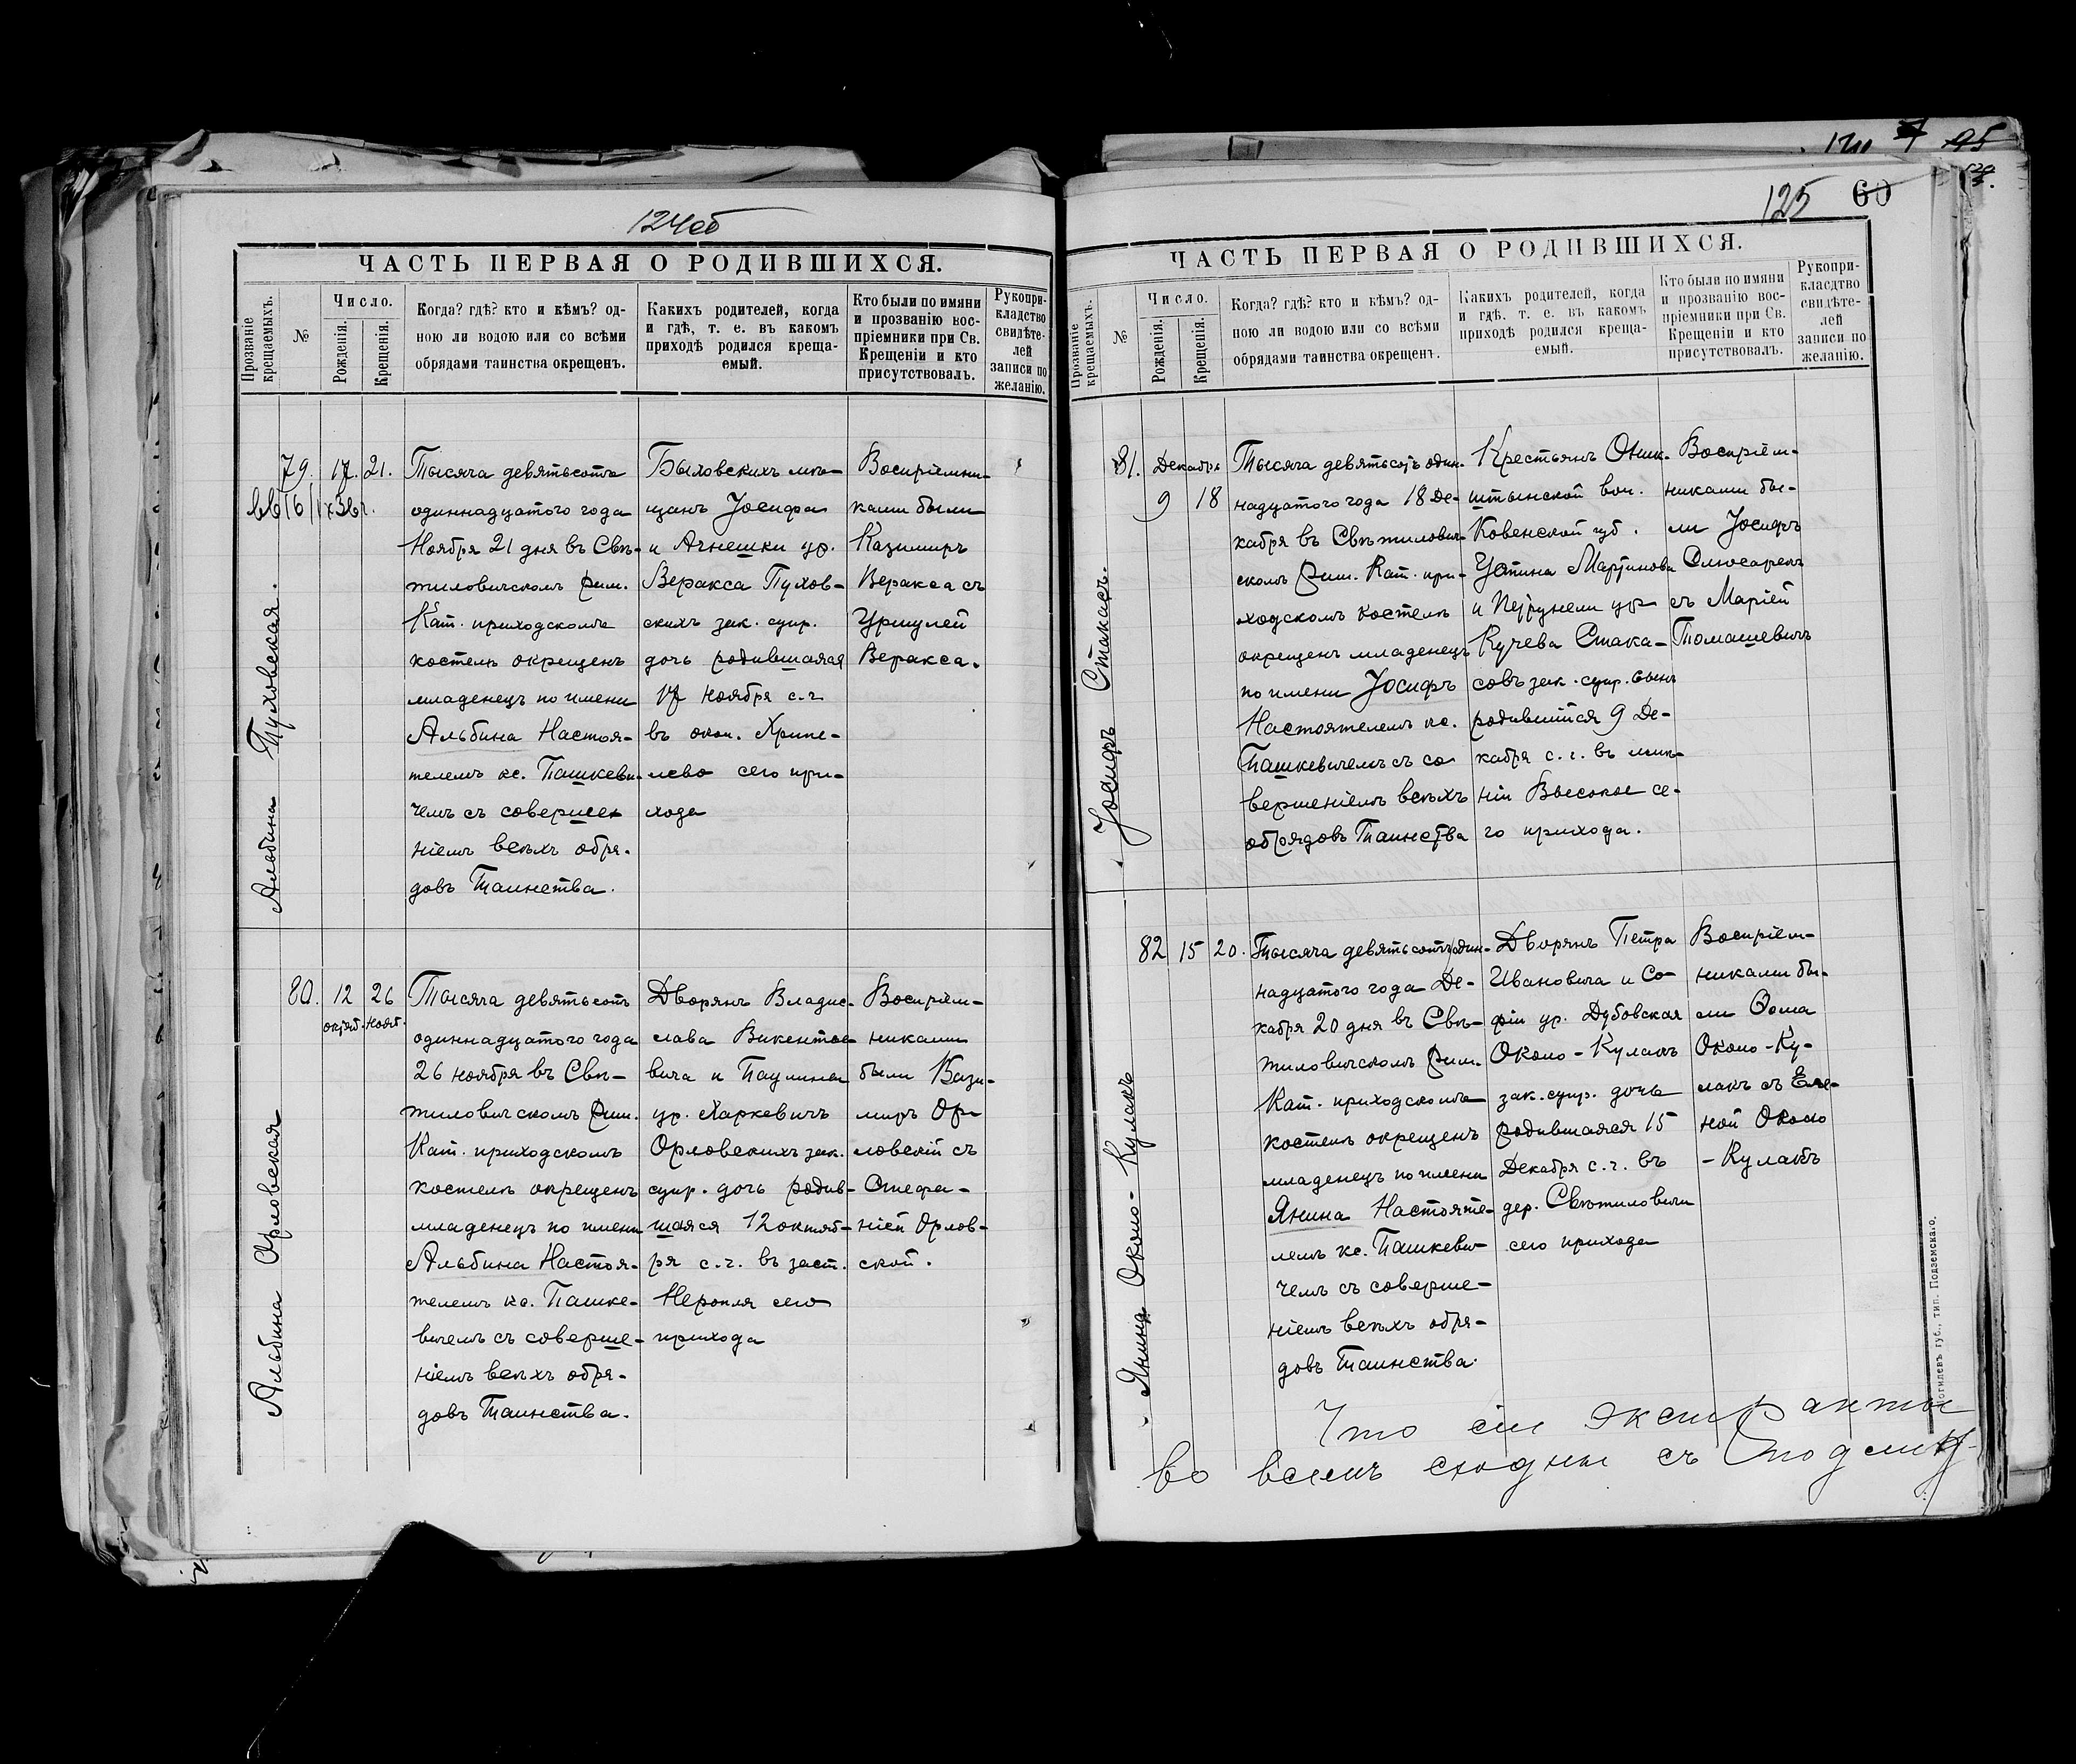 124об
ЧАСТЬ ПЕРВАЯ О РОДИВШИХСЯ.
Прозваніе крещаемыхъ.
№
Число.
Рожденія.
Крещенія.
Когда? гдѣ? кто и кѣмъ? од-
ною ли водою или со всѣми
обрядами таинства окрещенъ.
Какихъ родителей, когда
и гдѣ, т. е. въ какомъ
приходѣ родился креща-
емый.
Кто были по имяни
и прозванію вос-
пріемники при Св.
Крещеніи и кто
присутствовалъ.
Рукопри-
кладство
свидѣте-
лей
записи по
желанію.
Альбина Пуховская.
79.
17.
21.
Тысяча девятьсотъ
одиннадцатого года
Ноября 21 дня въ Свѣ-
тиловичскомъ Рим.
Кат. приходскомъ
костелѣ окрещенъ
младенецъ по имени
Альбина Настоя-
телемъ кс. Пашкеви-
чемъ съ совершен
ніемъ всѣхъ обря-
довъ Таинства.
Быховскихъ мѣ-
щанъ Іосифа
и Агнешки ур.
Веракса Пухов-
скихъ зак. супр.
дочь родившаяся
17 ноября с.г.
въ окол. Хрипе-
лево сего при-
хода
Воспріемни-
ками были
Казимиръ
Веракса съ
Уршулей
Веракса.
Альбина Орловская
80.
12
октяб.
26
нояб.
Тысяча девятьсотъ
одиннадцатого года
26 ноября въ Свѣ-
тиловичскомъ Рим.
Кат. приходскомъ
костелѣ окрещенъ
младенецъ по имени
Альбина Настоя-
телемъ кс. Пашке-
вичемъ съ соверше-
ніемъ всѣхъ обря-
довъ Таинства.
Дворянъ Владис-
лава Викентье-
вича и Паулины
ур. Харкевичъ
Орловскихъ зак.
супр. дочь родив-
шаяся 12 октяб-
ря с.г. въ заст.
Неропля сего
прихода
Воспріем-
никами
были Кази-
миръ Ор-
ловскій съ
Стефа-
ніей Орлов-
ской.
125
60
ЧАСТЬ ПЕРВАЯ О РОДИВШИХСЯ.
Прозваніе крещаемыхъ.
№
Число.
Рожденія.
Крещенія.
Когда? гдѣ? кто и кѣмъ? од-
ною ли водою или со всѣми
обрядами таинства окрещенъ.
Какихъ родителей, когда
и гдѣ, т. е. въ какомъ
приходѣ родился креща-
емый.
Кто были по имяни
и прозванію вос-
пріемники при Св.
Крещеніи и кто
присутствовалъ.
Рукопри-
кладство
свидѣте-
лей
записи по
желанію.
Іосифъ Стакасъ.
81.
Декабря
9
18
Тысяча девятьсотъ один-
надцатого года 18 Де-
кабря въ Свѣтилович-
скомъ Рим. Кат. при-
ходскомъ костелѣ
окрещенъ младенецъ
по имени Іосифъ
Настоятелемъ кс.
Пашкевичемъ съ со
вершеніемъ всѣхъ
обрядовъ Таинства
Крестьянъ Оник-
штынской вол.
Ковенской губ.
Устина Мартинова
и Петрунели ур
Кучева Стака-
совъ зак. супр. сынъ
родившійся 9 Де-
кабря с.г. въ имѣ-
ніи Высокое се-
го прихода.
Воспріем-
никами бы-
ли Іосифъ
Слюсарекъ
съ Маріей
Томашевичъ
Янина Около-Кулакъ
82
15
20.
Тысяча девятьсотъ один-
надцатого года Де-
кабря 20 дня въ Свѣ-
тиловичскомъ Рим.
Кат. приходскомъ
костелѣ окрещенъ
младенецъ по имени
Янина Настояте-
лемъ кс. Пашкеви-
чемъ съ соверше-
ніемъ всѣхъ обря-
довъ Таинства.
Дворянъ Петра
Ивановича и Со-
фіи ур. Дубовская
Около-Кулакъ
зак. супр. дочь
родившаяся 15
Декабря с.г. въ
дер. Свѣтиловичи
сего прихода
Воспріем-
никами бы-
ли Ѳома
Около-Ку-
лакъ съ Еле-
ной Около
-Кулакъ
Что сіи экстракты
во всемъ сходны съ подлин-
Могилевъ губ., тип. Подземскаго.